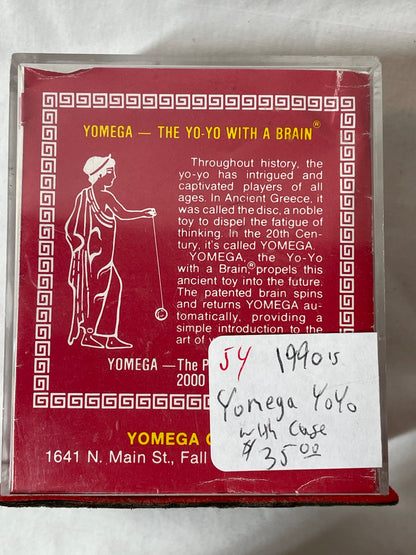 YOMEGA — THE YO-YO WITH A BRAIN®
Throughout history, the
yo-yo has intrigued and
captivated players of all
ages. In Ancient Greece, it
was called the disc, a noble
toy to dispel the fatigue of
thinking. In the 20th Cen-
tury, it's called YOMEGA.
YOMEGA, the Yo-Yo
with a Brain,® propels this
ancient toy into the future.
The patented brain spins
and returns YOMEGA au-
tomatically, providing a
simple introduction to the
art of
YOMEGA — The
2000
YOMEGA
1641 N. Main St., Fall
J4 1990's
Yomega YoYo
with Case
$35.00